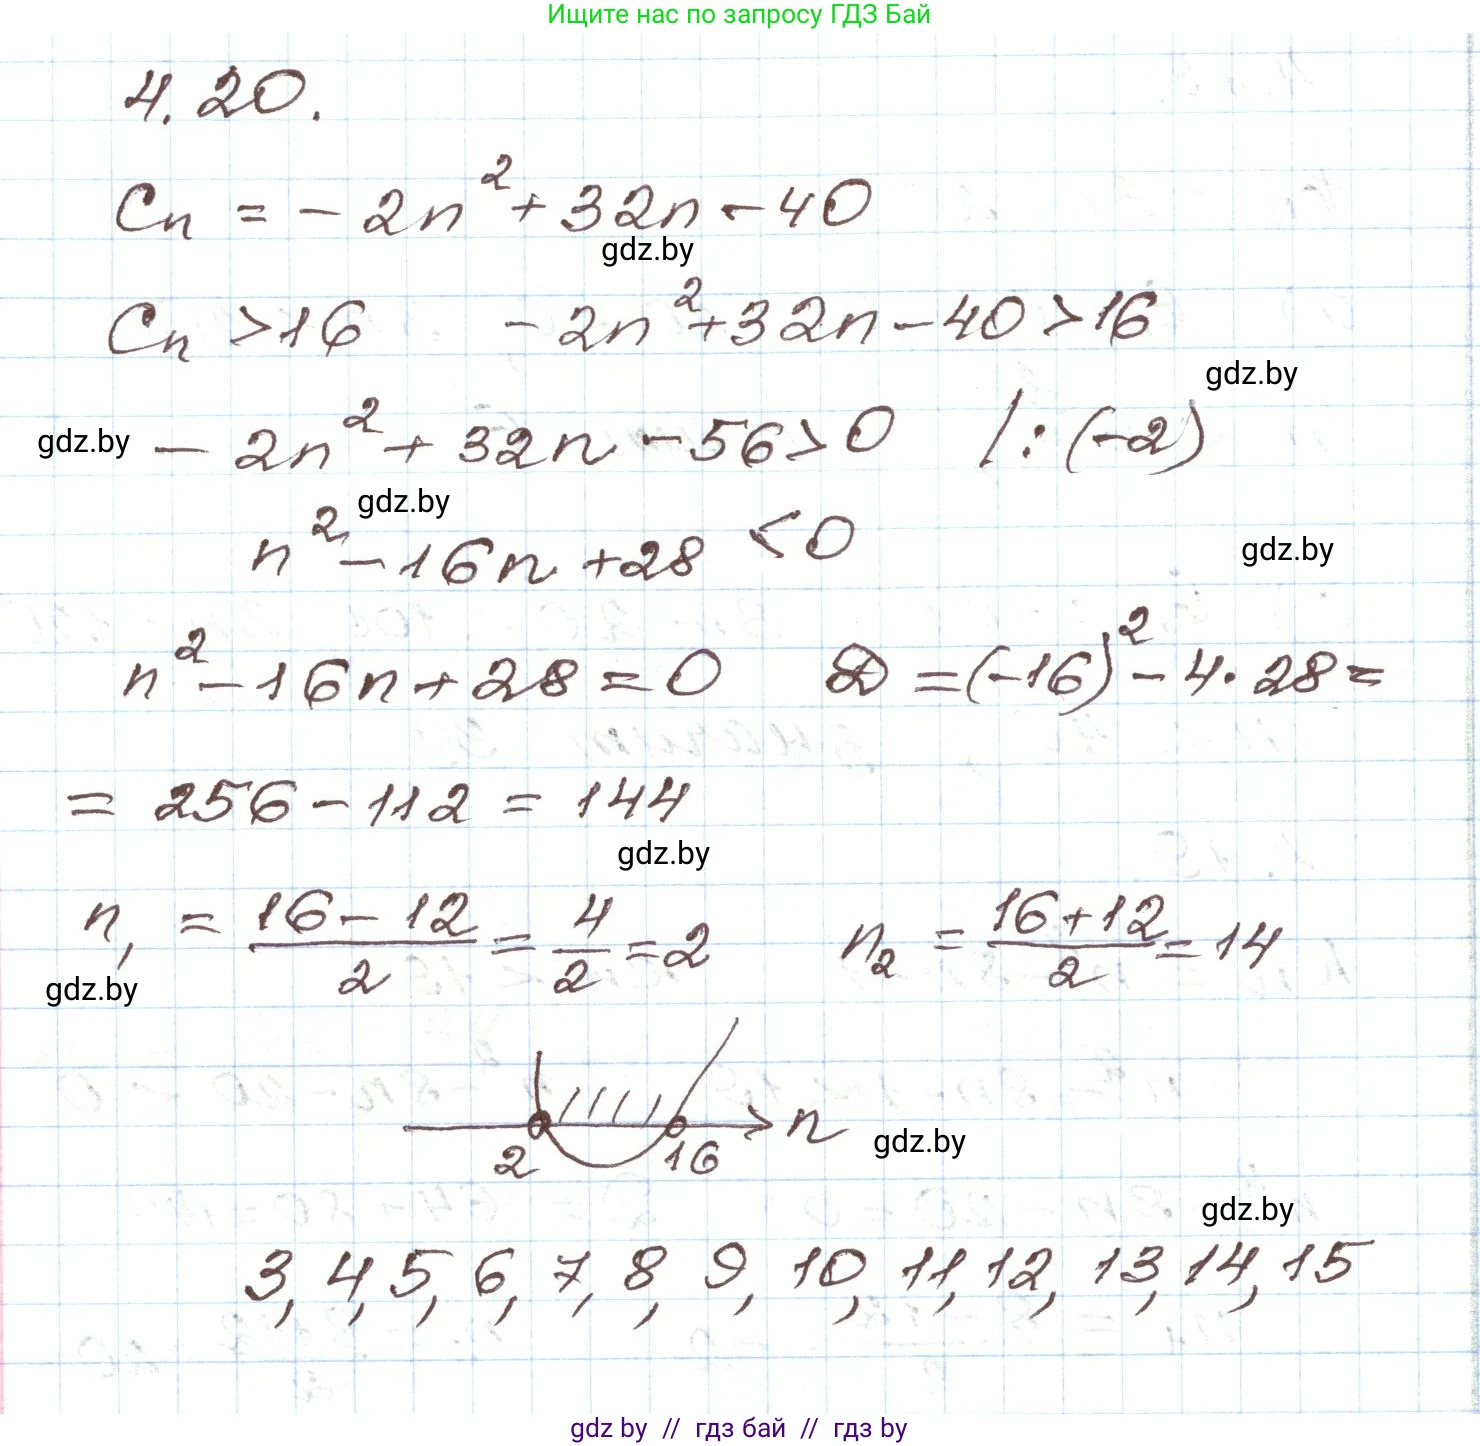 Ищите нас по запросу ГДЗ Бай
4.20.
Cn = - 2n² + 32n - 40
gdz.by
Cn > 16 - 2n² + 32n - 40 > 16
gdz.by
gdz.by - 2n² + 32n - 56 > 0 / : (-2)
gdz.by
n² - 16n + 28 < 0
gdz.by
n² - 16n + 28 = 0 D = (-16)² - 4 · 28 =
= 256 - 112 = 144
gdz.by
n₁ = (16 - 12)/2 = 4/2 = 2 n₂ = (16 + 12)/2 = 14
gdz.by
2 16 n
gdz.by
gdz.by
3, 4, 5, 6, 7, 8, 9, 10, 11, 12, 13, 14, 15
gdz by // гдз бай // гдз by